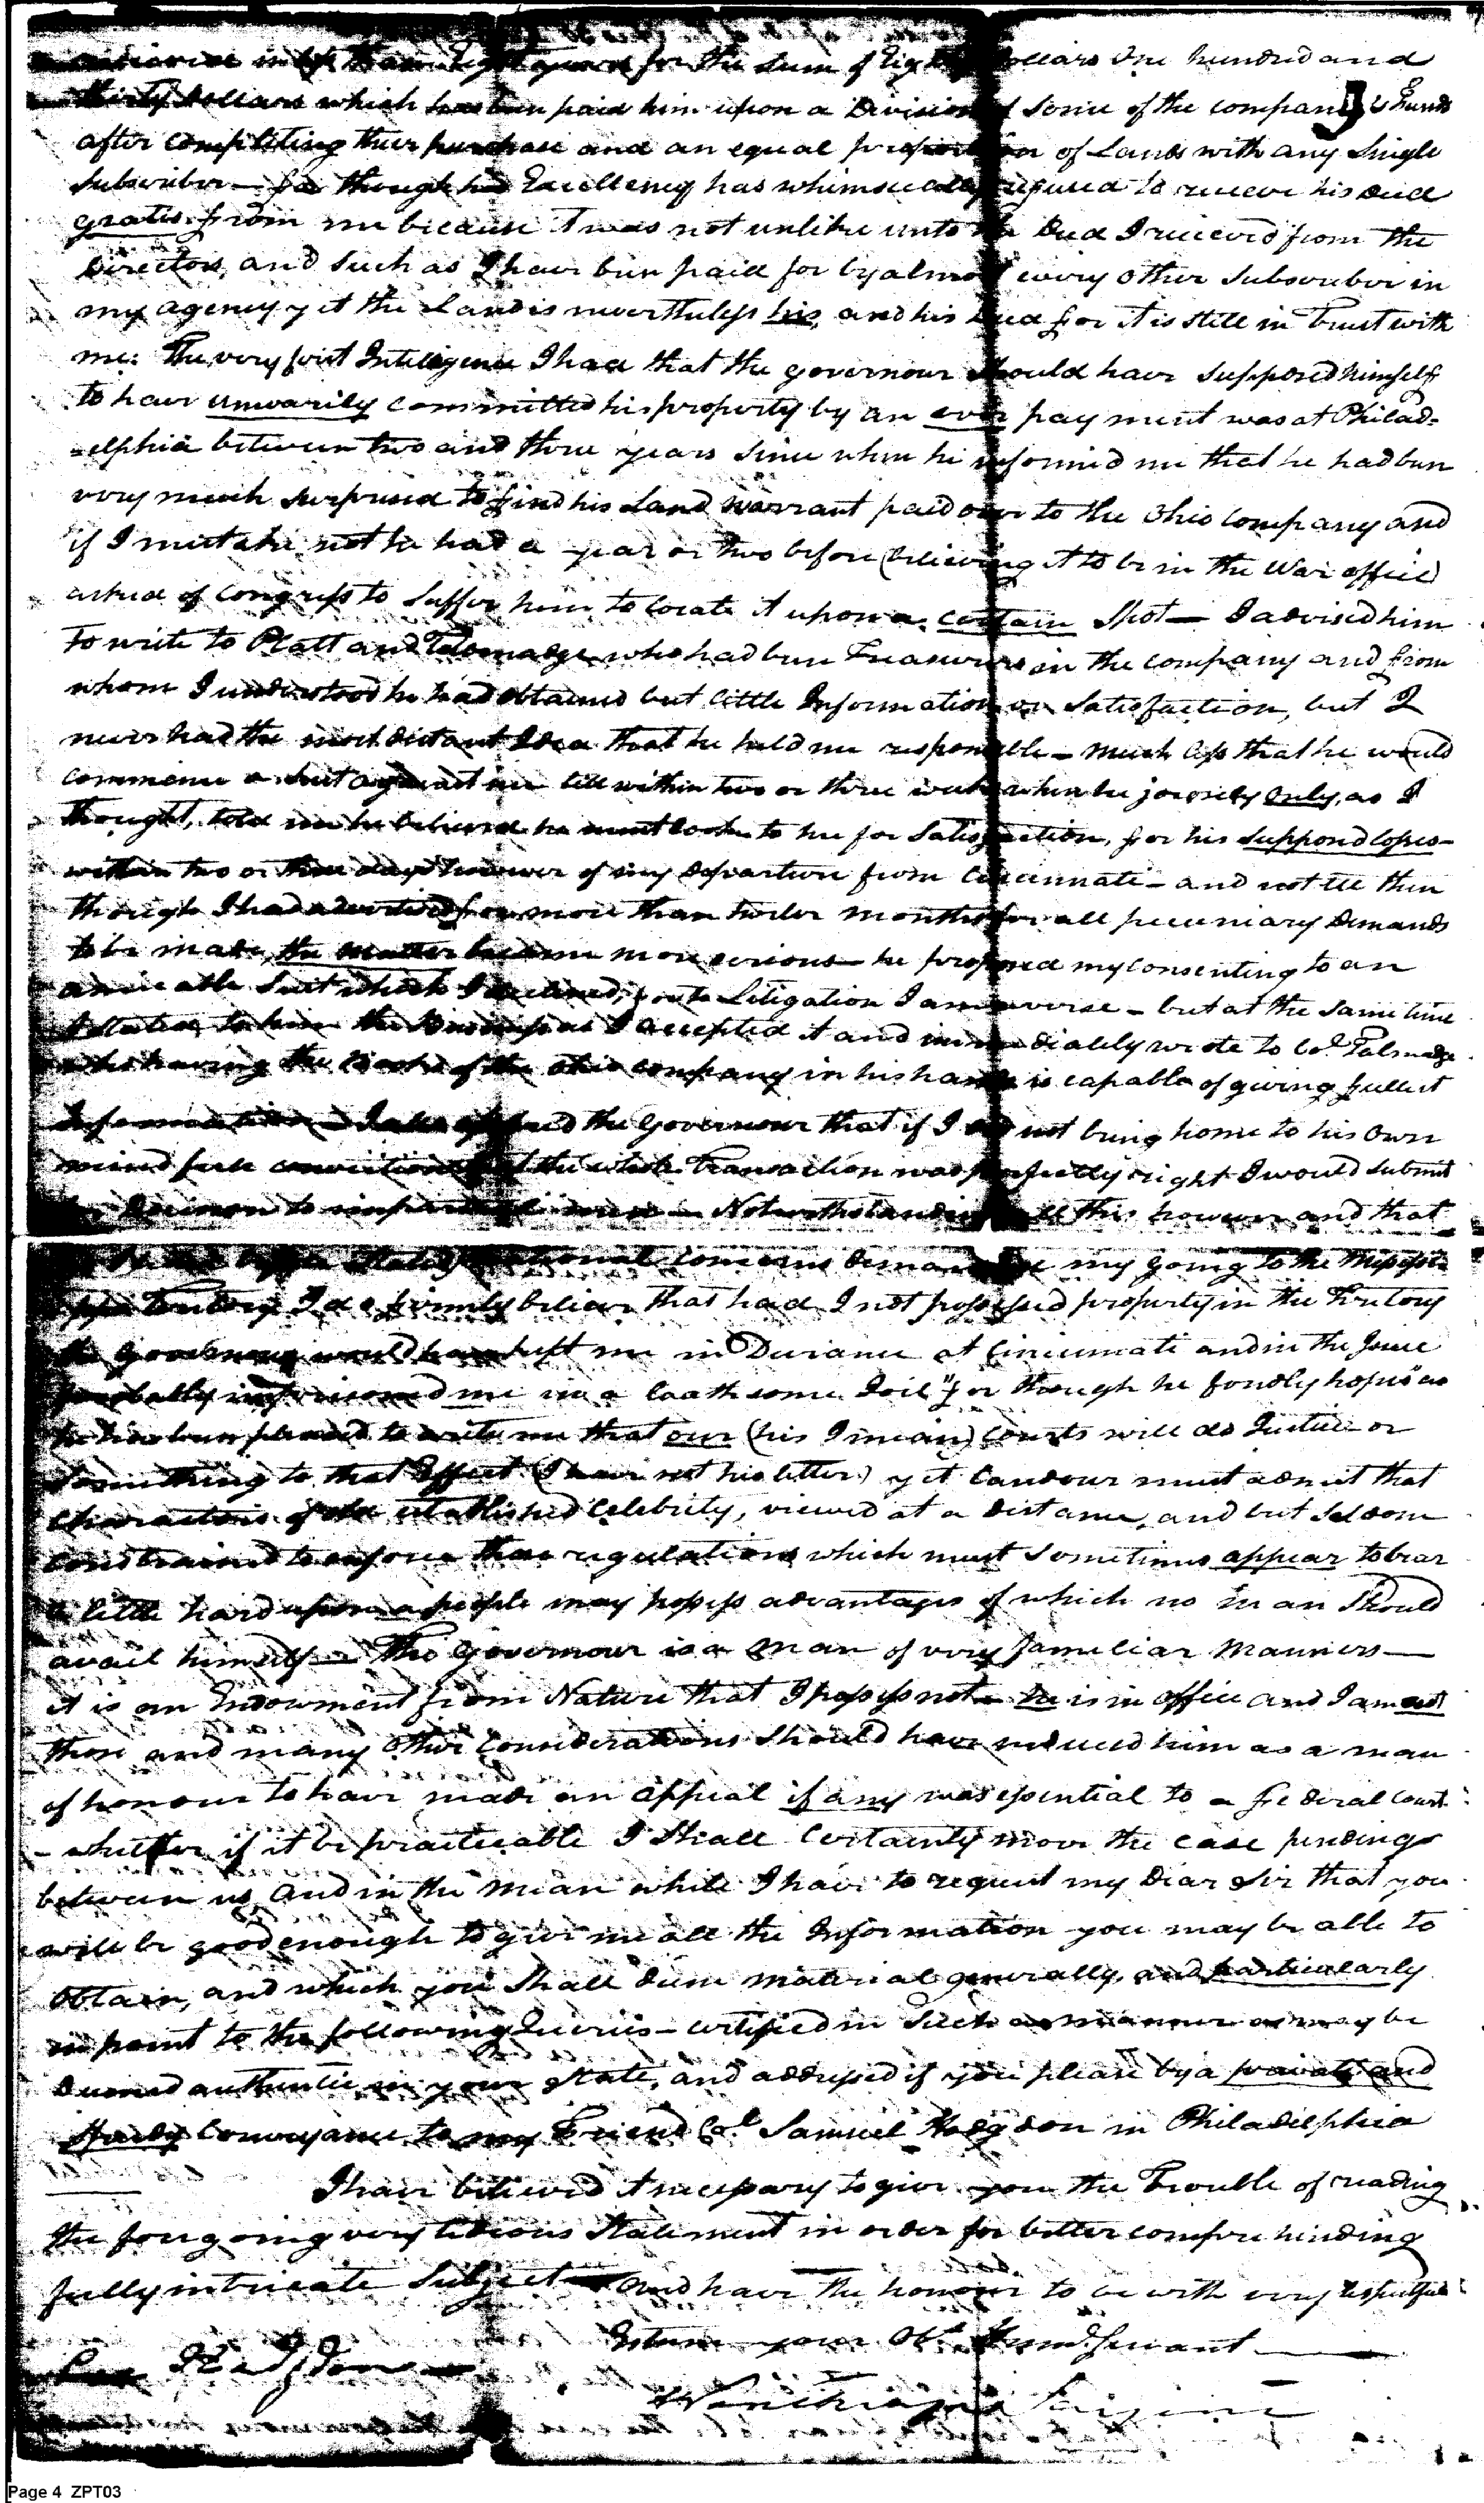 in less than Eight years for the Sum of Eighty Dollars One hundred and
thirty Dollars which has been paid him upon a Division of Some of the company's Funds
after compleating their purchase and an equal proportion of Lands with any Single
Subscriber — for though his Excellency has whimsically refused to recieve his Deed
gratis from me because it was not unlike unto the Deed I recieved from the
Directors, and Such as I have been paid for by almost every other Subscriber in
my agency yet the Land is nevertheless his, and his Deed for it is still in Trust with
me. The very first Intelligence I had that the governour Should have Supposed himself
to have unwarily committed his property by an over payment was at Philad-
-elphia between two and three years Since when he informed me that he had been
very much Surprised to find his Land Warrant paid over to the Ohio Company and
if I mistake not he had a year or two before (believing it to be in the War office)
asked of Congress to Suffer him to locate it upon a certain Spot — I advised him
To write to Platt and Talmadge who had been Treasurers in the company and from
whom I understood he had obtained but little Information or Satisfaction, but I
never had the most distant Idea that he held me responsible — much less that he would
commence a Suit against me till within two or three weeks when he jocosely only, as I
thought, told me he believed he must look to me for Satisfaction, for his supposed losses —
within two or three days however of my Departure from Cincinnati — and not till then
though I had advertised for more than twelve months for all pecuniary Demands
to be made, the matter became more serious — he proposed my consenting to an
amicable Suit which I declined, for to Litigation I am averse — but at the Same time
I Stated to him the Business as I accepted it and immediately wrote to Col. Talmadge
who having the Books of the Ohio company in his hands is capable of giving fullest
Information — I also the Governour that if I did not bring home to his own
mind full conviction that the whole Transaction was perfectly right I would Submit
the Decision to impartial men — Notwithstanding all this however and that
concerns Demanded my going to the Missisi-
-ppi Territory I do firmly believe that had I not possessed property in the Territory
the Governour would have kept me in Durance at Cincinnati and in the Issue
probably imprisoned me in a loathsome Goil" for though he fondly hopes" as
he has been pleased to write me that our (his I mean) Courts will do Justice or
Something to that Effect (I have not his letter) yet Candour must admit that
Characters of established Celebrity, viewed at a distance, and but Seldom
constrained to enforce those regulations which must Sometimes appear to bear
a little hard upon a people may possess advantages of which no man Should
avail himself — The Governour is a man of very familiar Manners —
it is an Endowment from Nature that I possess not — he is in office and I am out
these and many other Considerations Should have induced him as a man
of honour to have made an appeal if any was essential to a Federal Court
– whither if it be practicable I Shall Certainly move the case pending
between us, and in the mean while I have to request my Dear Sir that you
will be good enough to give me all the Information you may be able to
obtain, and which you Shall deem material generally, and particularly
in point to the following Queries — certified in Such a manner as may be
Deemed authentic in your State, and addressed if you please by a private and
Conveyance to my Friend Col. Samuel Hodgdon in Philadelphia
I have believed it necessary to give you the Trouble of reading
the foregoing very tedious Statement in order for better comprehending
fully intricate Subject — and have the honour to be with very respectful
Esteem your Ob. Humb. Servant
Winthrop Sargent
Page 4 ZPT03